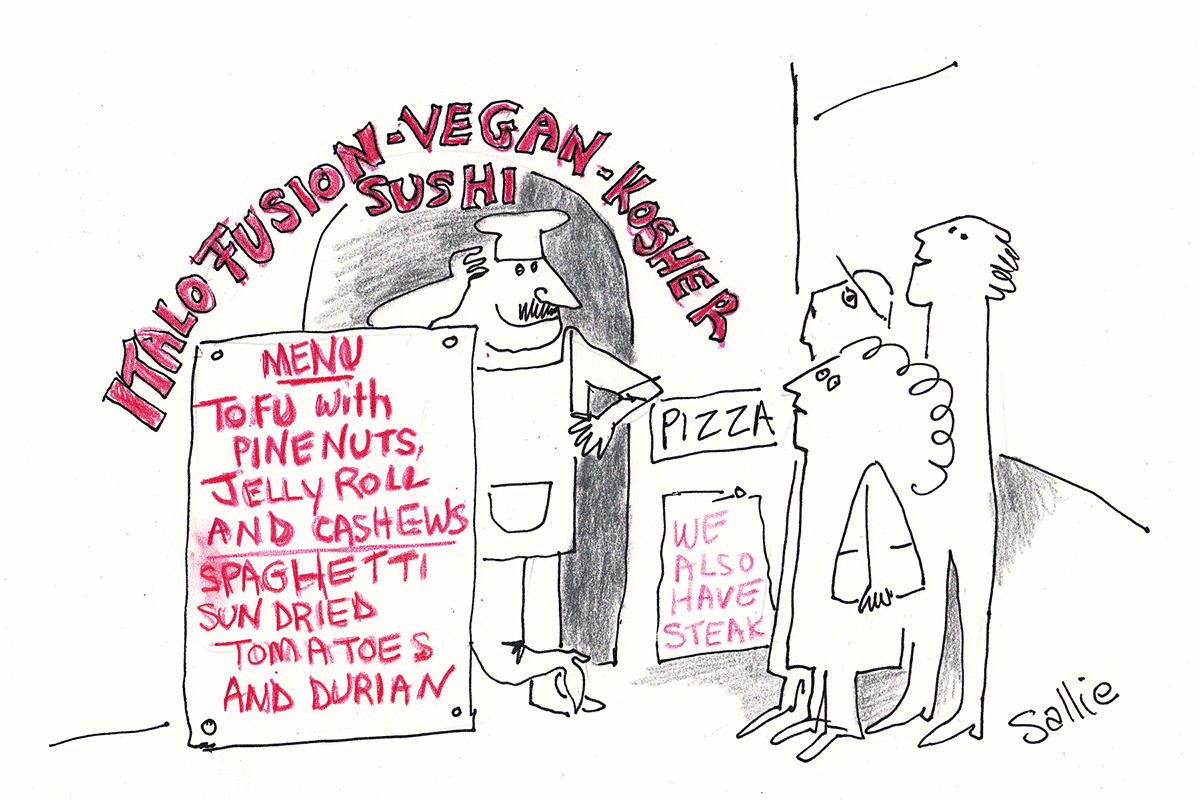 ITALO FUSION-VEGAN-KOSHER
SUSHI
MENU
TOFU with
PINENUTS,
JELLY ROLL
AND CASHEWS
SPAGHETTI
SUN DRIED
TOMATOES
AND DURIAN
PIZZA
WE
ALSO
HAVE
STEAK
Sallie